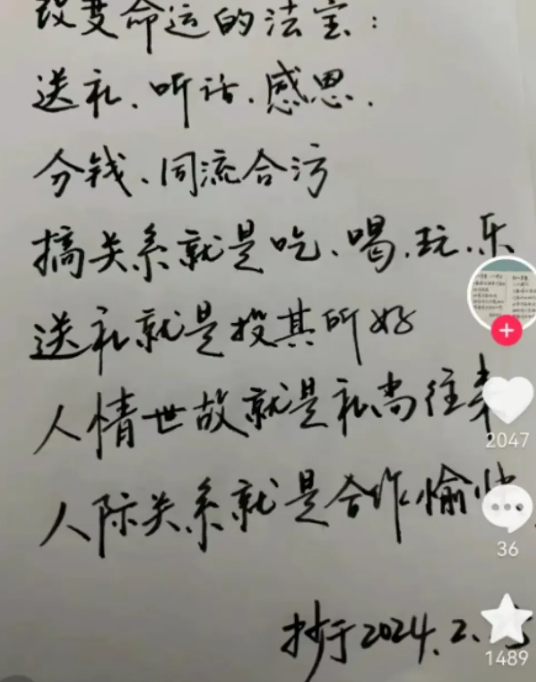 改变命运的法宝：
送礼、听话、感恩、
分钱、同流合污
搞关系就是吃、喝、玩、乐
送礼就是投其所好
人情世故就是礼尚往来
2047
人际关系就是合作愉快
36
抄于2024.2.
1489